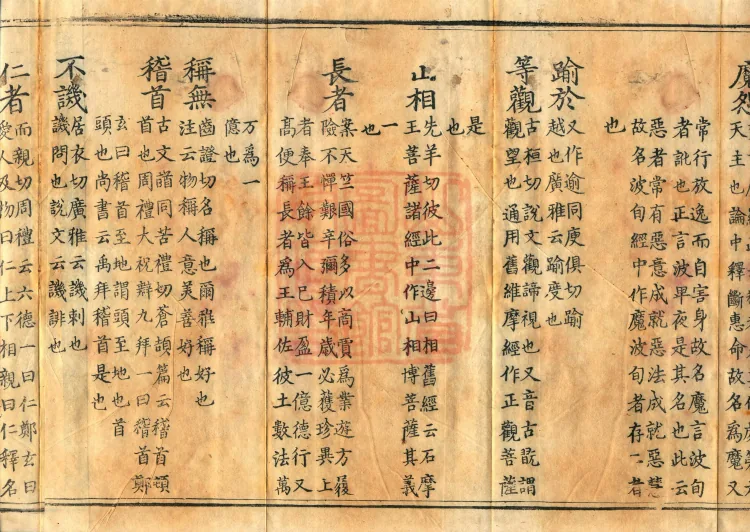 天主也論中釋斷惠命故名為魔又
常行放逸而自害身故名魔言波旬
者訛也正言波卑夜是其名也此云
惡者常有惡意成就惡法成就惡慧
故名波旬經中作魔波旬者存二者
也
踰於
又作逾同庾俱切踰
越也廣雅云踰度也
等觀
古桓切説文觀諦視也又音古翫謂
觀望也通用舊維摩經作正觀菩薩
是
也
山相
先羊切彼此二邊曰相舊經云石摩
王菩薩諸經中作山相博菩薩其義
一
也
長者
案天竺國俗多以商賈爲業遊方履
險不憚艱辛彌積年歲必獲珍異上
者奉王餘皆入已財盈一億德行又
高便稱長者爲王輔佐彼土數法萬
万爲一
億也
稱無
齒證切名稱也爾雅稱好也
注云物稱人意美善好也
稽首
古文䭫同苦禮切蒼頡篇云稽首頓
首也周禮大祝辨九拜一曰稽首鄭
玄曰稽首至地謂頭至地也首
頭也尚書云禹拜稽首是也
不譏
居衣切廣雅云譏刺也
譏問也説文云譏誹也
仁者
而親切周禮云六德一曰仁鄭玄曰
愛人及物曰仁上下相親曰仁釋名